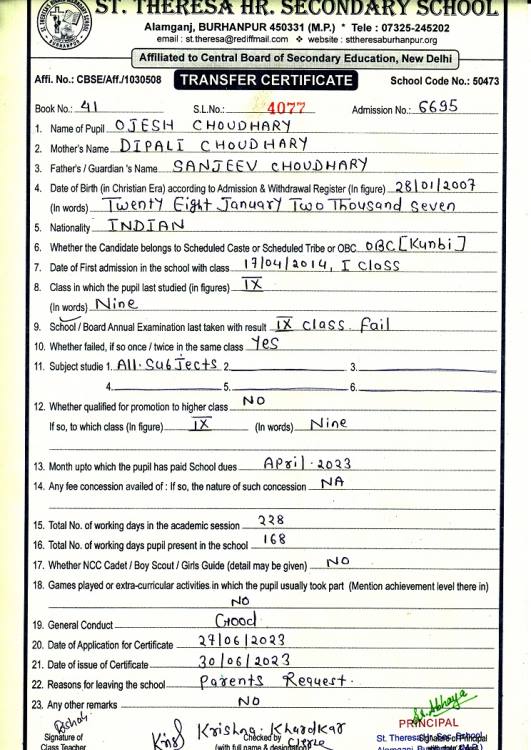 ST. THERESA HR. SECONDARY SCHOOL
Alamganj, BURHANPUR 450331 (M.P.) * Tele : 07325-245202
email : st.theresa@rediffmail.com ❖ website : sttheresaburhanpur.org
Affiliated to Central Board of Secondary Education, New Delhi
Affi. No.: CBSE/Aff./1030508 TRANSFER CERTIFICATE School Code No.: 50473
Book No.: 41 S.L.No.: 4077 Admission No.: 6695
1. Name of Pupil OJESH CHOUDHARY
2. Mother's Name DIPALI CHOUDHARY
3. Father's / Guardian 's Name SANJEEV CHOUDHARY
4. Date of Birth (in Christian Era) according to Admission & Withdrawal Register (In figure) 28/01/2007
(In words) Twenty Eight January Two Thousand Seven
5. Nationality INDIAN
6. Whether the Candidate belongs to Scheduled Caste or Scheduled Tribe or OBC OBC [Kunbi]
7. Date of First admission in the school with class 17/04/2014, I Class
8. Class in which the pupil last studied (in figures) IX
(In words) Nine
9. School / Board Annual Examination last taken with result IX class fail
10. Whether failed, if so once / twice in the same class Yes
11. Subject studie 1. All Subjects 2. 3.
4. 5. 6.
12. Whether qualified for promotion to higher class NO
If so, to which class (In figure) IX (In words) Nine
13. Month upto which the pupil has paid School dues April - 2023
14. Any fee concession availed of : If so, the nature of such concession NA
15. Total No. of working days in the academic session 228
16. Total No. of working days pupil present in the school 168
17. Whether NCC Cadet / Boy Scout / Girls Guide (detail may be given) NO
18. Games played or extra-curricular activities in which the pupil usually took part (Mention achievement level there in)
NO
19. General Conduct Good
20. Date of Application for Certificate 27/06/2023
21. Date of issue of Certificate 30/06/2023
22. Reasons for leaving the school Parents Request.
23. Any other remarks NO
PRINCIPAL
Krishna Kharolkar
Signature of Checked by St. Theresa Hr. Sec. School Signature of Principal
Class Teacher (with full name & designation)